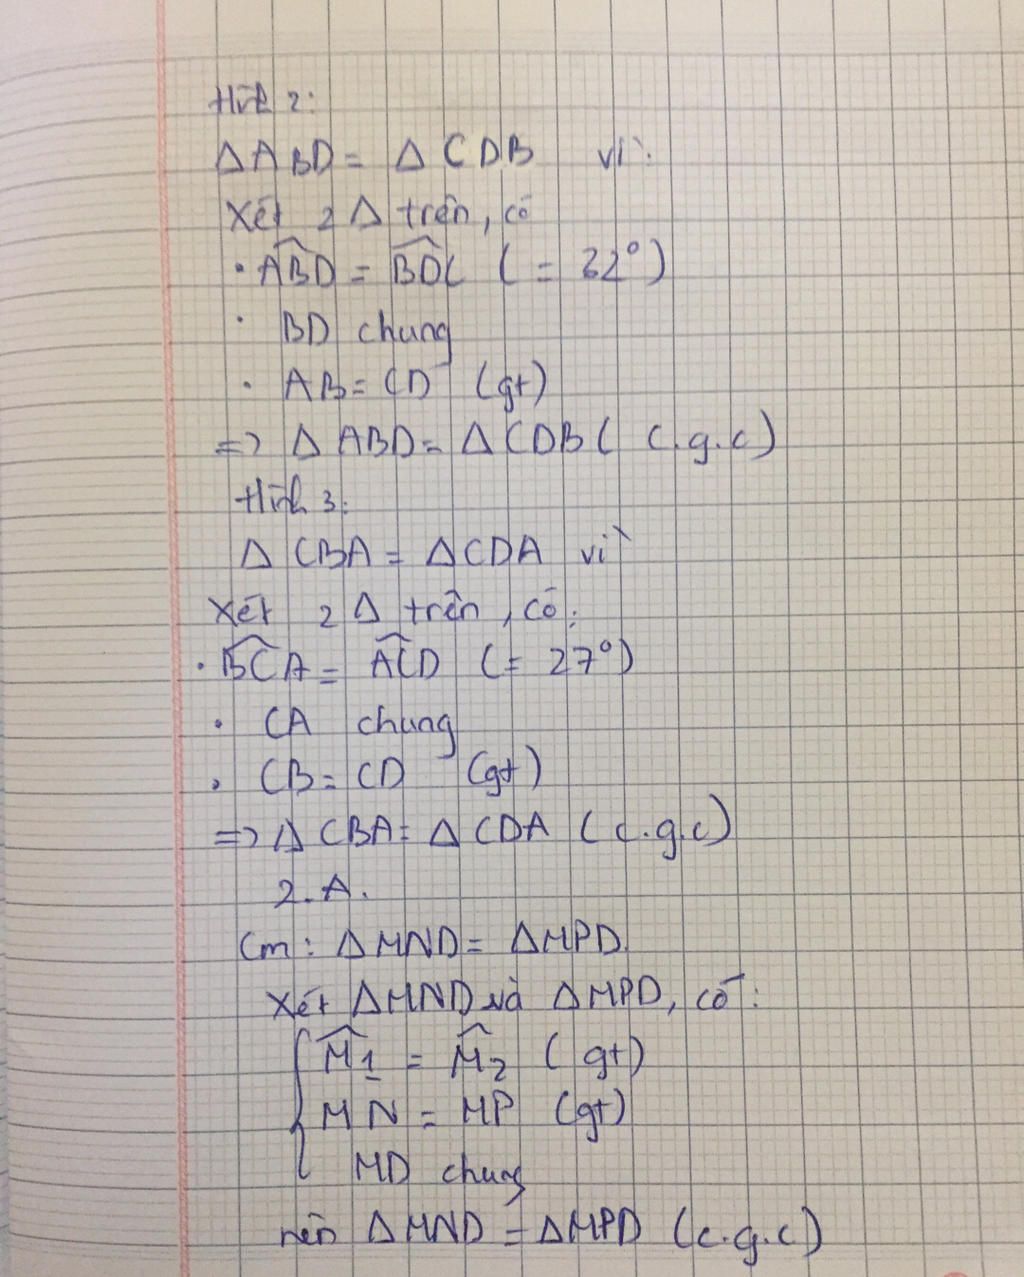 Hình 2:
ΔABD = ΔCDB vì:
Xét 2 Δ trên, có
· \widehat{ABD} = \widehat{BDC} (= 32°)
· BD chung
· AB = CD (gt)
=> ΔABD = ΔCDB (c.g.c)
Hình 3:
ΔCBA = ΔCDA vì
Xét 2 Δ trên, có:
· \widehat{BCA} = \widehat{ACD} (= 27°)
· CA chung
· CB = CD (gt)
=> ΔCBA = ΔCDA (c.g.c)
2.A.
Cm: ΔMND = ΔMPD.
Xét ΔMND và ΔMPD, có:
\widehat{M1} = \widehat{M2} (gt)
MN = MP (gt)
MD chung
nên ΔMND = ΔMPD (c.g.c)